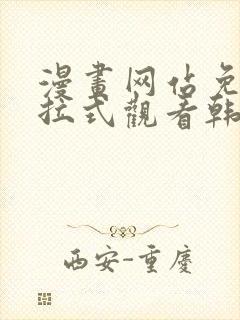 漫畫网佔免
拉式觀看韩
西安-重慶